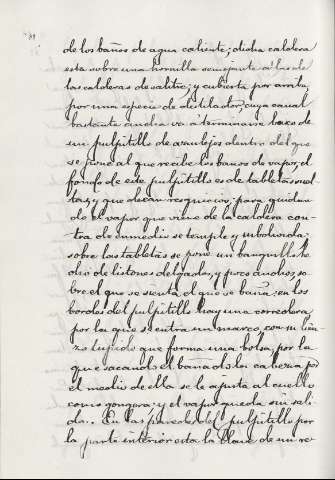 de los baños de agua caliente; dicha caldera
esta sobre una hornilla semejante á las de
las calderas de salitre; y cubierta por arriba
por una especie de destilador, cuya canal
bastante ancha va á terminarse baxo de
un pulpitillo de azulejos dentro del que
se pone al que recibe los baños de vapor; el
fondo de este pulpitillo es de tabletas suel-
tas, y que dexan resquicios; para quedan-
do el vapor que viene de la caldera con-
tra de enmedio se temple y
sobre las tabletas se pone un banquillo he
cho de listones delgados, y poco anchos, so-
bre el que se sienta el que se baña; en los
bordes del pulpitillo hay una corredera,
por la que se entra un marco, con su lien-
zo tupido que forma una bolsa, por la
que sacando el bañado la cabeza por
el medio de ella se le ajusta al cuello
como gongora; y el vapor queda sin sali-
da. En las paredes del pulpitillo por
la parte interior esta la llave de un re-